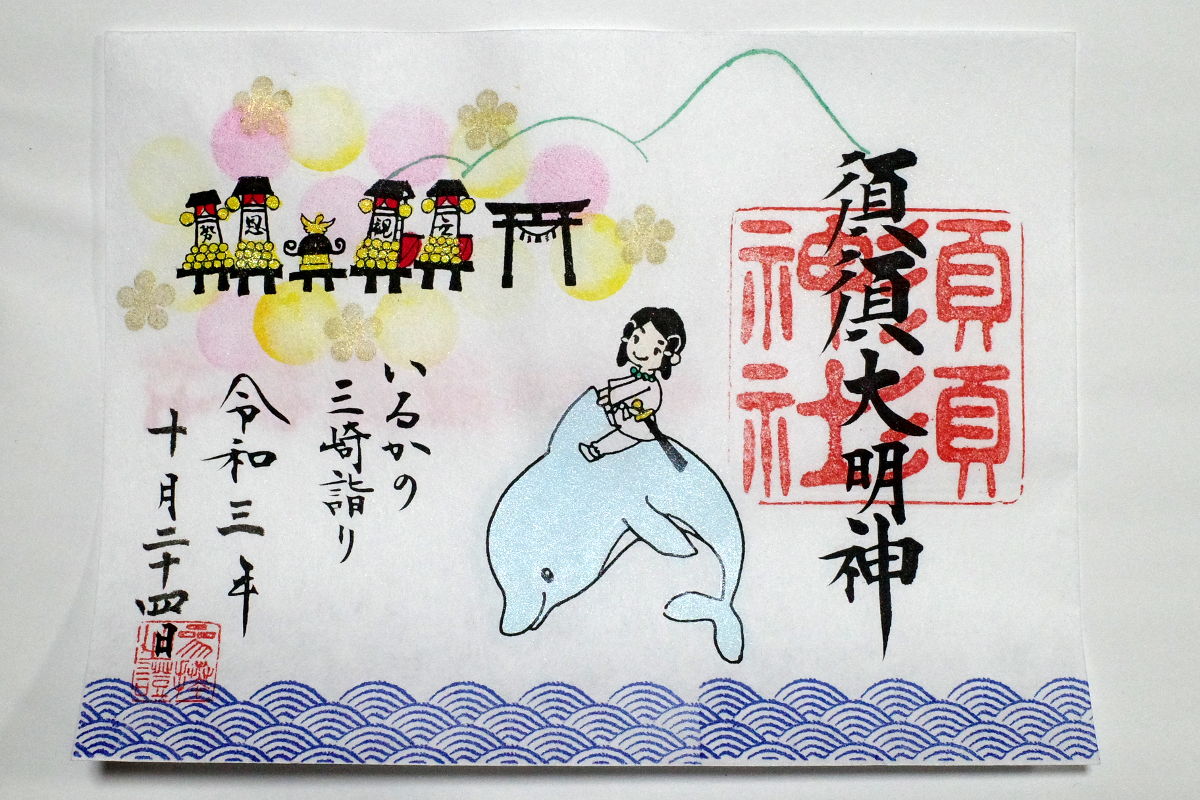 須須大明神
須須
神社
いるかの
三崎詣り
令和三年
十月二十四日